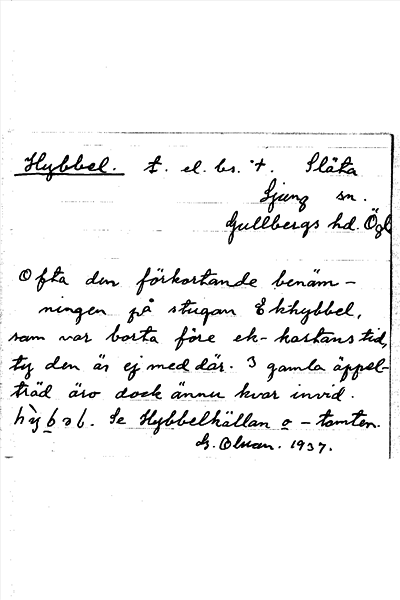 Hybbel. t. el. bs. +. Släta
Ljung sn.
Gullbergs hd. Ögl
Ofta den förkortande benäm-
ningen på stugan Ekhybbel,
som var borta före ek-kartans tid,
ty den är ej med där. 3 gamla äppel-
träd äro dock ännu kvar invid.
hy̆bəb. Se Hybbelkällan o - tomten.
G. Olsson. 1937.